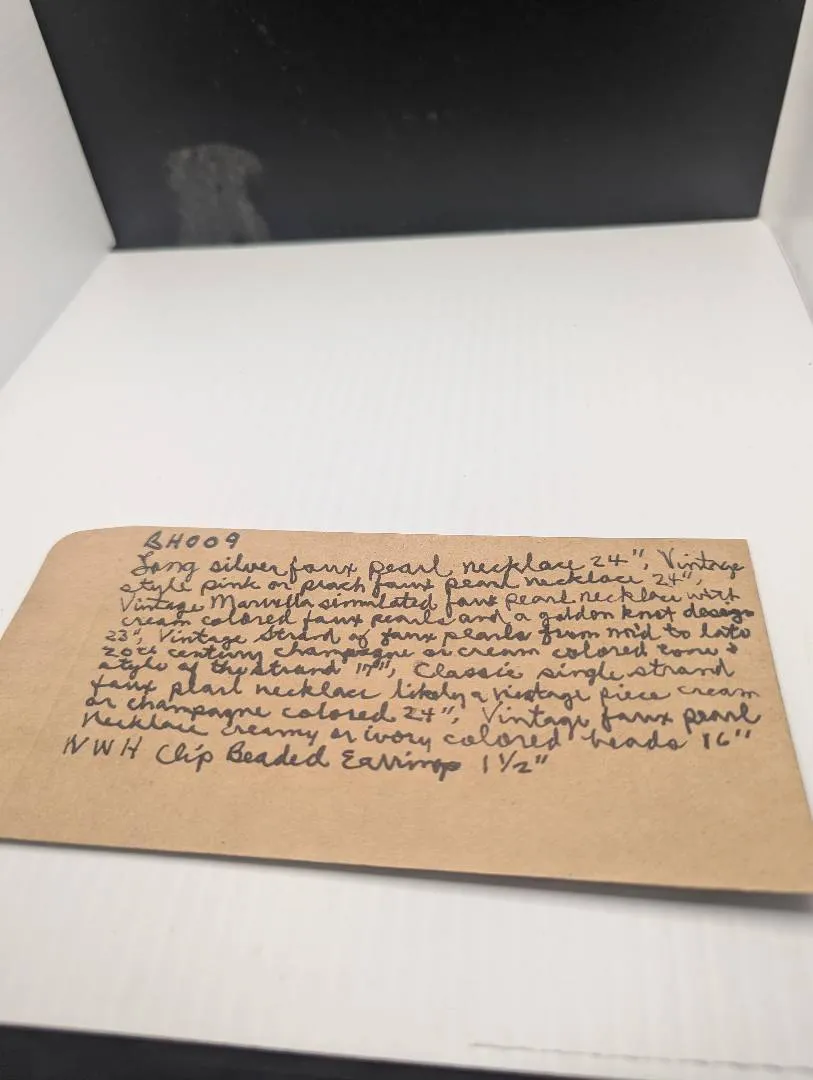 BH009
Long silver faux pearl necklace 24", Vintage
style pink or peach faux pearl necklace 24",
Vintage Marvella simulated faux pearl necklace with
cream colored faux pearls and a golden knot design
23", Vintage Strand of faux pearls from mid to late
20th century champagne or cream colored tone &
style of the strand 17", Classic single strand
faux pearl necklace likely a vintage piece cream
or champagne colored 24", Vintage faux pearl
necklace creamy or ivory colored beads 16"
NWH Clip Beaded Earrings 1 1/2"